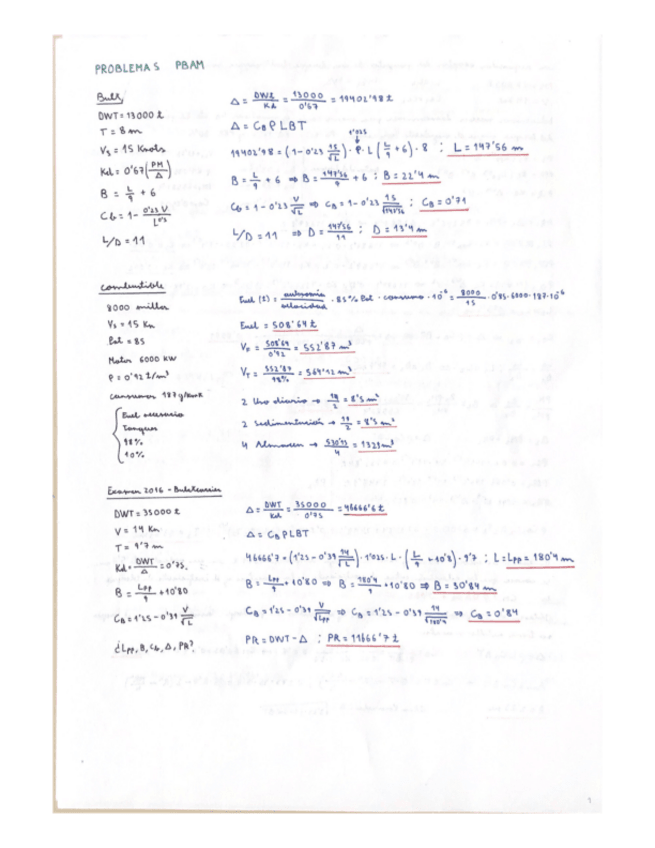 PROBLEMAS PBAM
Bulk
DWT = 13000 t
T = 8 m
Vs = 15 Knots
Kd = 0'67 (PM/Δ)
B = L/9 + 6
Cb = 1 - 0'23 V/L^0'5
L/D = 11
Δ = DWT/Kd = 13000/0'67 = 19402'98 t
Δ = CB ρ LBT
1'025
19402'98 = (1-0'23 15/√L) · ρ · L (L/9 + 6) · 8 ; L = 147'56 m
B = L/9 + 6 ⇒ B = 147'56/9 + 6 ; B = 22'4 m
Cb = 1 - 0'23 V/√L ⇒ CB = 1 - 0'23 15/√147'56 ; CB = 0'71
L/D = 11 ⇒ D = 147'56/11 ; D = 13'4 m
Combustible
8000 millas
Vs = 15 Kn
Pot = 85
Motor 6000 KW
ρ = 0'92 t/m³
Consumo 187 g/kwh
Fuel necesario
Tanques
98%
10%
Fuel (t) = autonomía/velocidad · 85% Pot · consumo · 10^-6 = 8000/15 · 0'85 · 6000 · 187 · 10^-6
Fuel = 508'64 t
VF = 508'64/0'92 = 552'87 m³
VT = 552'87/98% = 564'12 m³
2 Uso diario →
2 Sedimentación →
4 Almacen →
Examen 2016 -
DWT = 35000 t
V = 14 Kn
T = 9'7 m
Kd = DWT/Δ = 0'75
B = Lpp/9 + 10'80
CB = 1'25 - 0'39 V/√L
¿Lpp, B, Cb, Δ, PR?
Δ = DWT/Kd = 35000/0'75 = 46666'6 t
Δ = CB ρ LBT
46666'7 = (1'25 - 0'39 14/√L) · 1'025 · L · (L/9 + 10'8) · 9'7 ; L = Lpp = 180'4 m
B = Lpp/9 + 10'80 ⇒ B = 180'4/9 + 10'80 ⇒ B = 30'84 m
CB = 1'25 - 0'39 V/√Lpp ⇒ CB = 1'25 - 0'39 14/√180'4 ⇒ CB = 0'84
PR = DWT - Δ ; PR = 11666'7 t
1